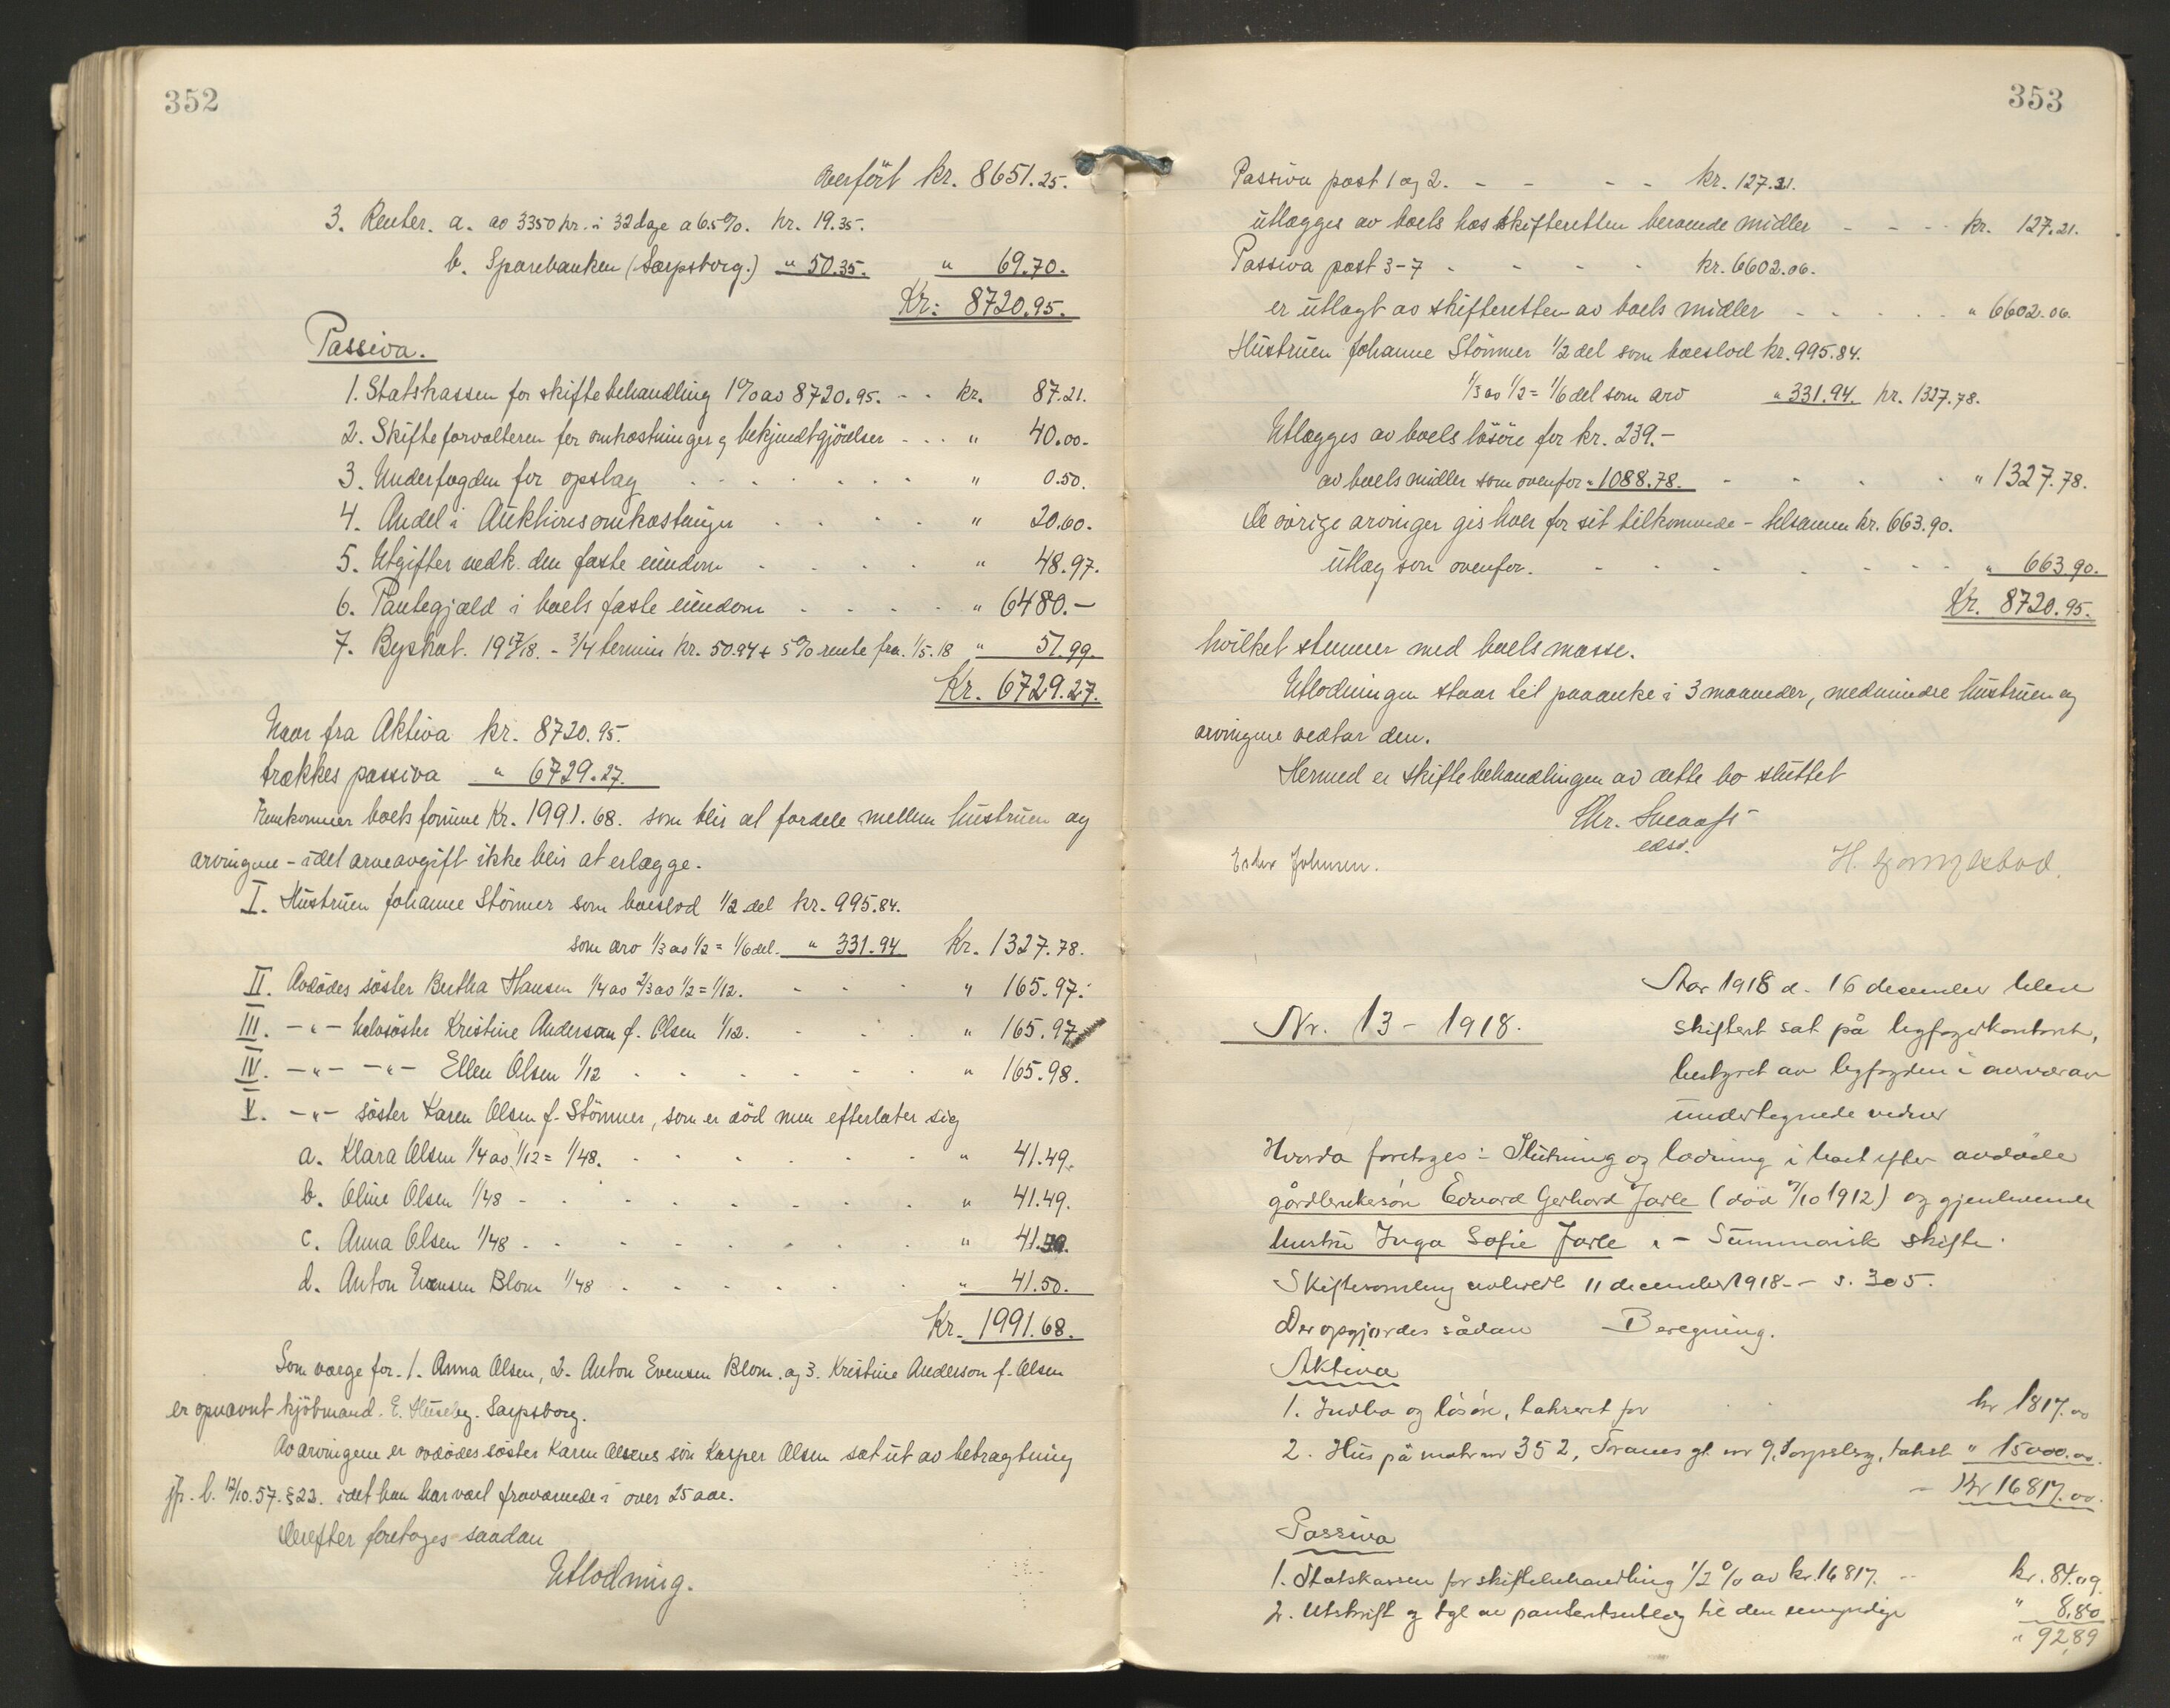 352
overført kr. 8651.25.
3. Renter. a. av 3350 kr. i 32 dage a 6.5%. kr. 19.35.
b. Sparebanken (Sarpsborg.) " 50.35. " 69.70.
Kr: 8720.95.
Passiva.
1. Statskassen for skiftebehandling 1% av 8720.95. - - kr. 87.21.
2. Skifteforvalteren for omkostninger og bekjendtgjörelser - . . " 40.00.
3. Underfogden for opslag " 0.50.
4. Andel i Auktionsomkostninger " 20.60.
5. Utgifter vedk. den faste eiindom " 48.97.
6. Pantegjæld i boets faste eiindom " 6480.-
7. Byskat. 1917/18. - 3/4 termin kr. 50.94 + 5% rente fra. 1/5.18 " 51.99.
Kr. 6729.27.
Naar fra Aktiva kr. 8720.95.
trækkes passiva " 6729.27.
Fremkommer boets formue Kr. 1991.68. som blir at fordele mellem hustruen og
arvingene - idet arveavgift ikke blir at erlægge.
I. Hustruen Johanne Störmer som boeslod 1/2 del kr. 995.84.
som arv 1/3 av 1/2 = 1/6 del. " 331.94. Kr. 1327.78.
II. Avdödes söster Bertha Hansen 1/4 av 2/3 av 1/2 = 1/12. " 165.97.
III. - " - halvsöster Kristine Anderson f. Olsen 1/12. " 165.97
IV. - " - - " - Ellen Olsen 1/12 " 165.98.
V. - " - söster Karen Olsen f. Störmer, som er död men efterlater sig
a. Klara Olsen 1/4 av 1/12 = 1/48. " 41.49.
b. Oline Olsen 1/48 - " 41.49.
c. Anna Olsen 1/48 - " 41.50.
d. Anton Evensen Blom 1/48 " 41.50.
Kr. 1991.68.
Som værge for. 1. Anna Olsen, 2. Anton Evensen Blom. og 3. Kristine Anderson f. Olsen
er opnævnt kjöbmand. E. Huseby. Sarpsborg.
Av arvingene er avdödes söster Karen Olsens sön Kasper Olsen sat ut av betragtning
jfr. l. 12/10.57. § 23. idet han har vært fraværende i over 25 aar.
Derefter foretages saadan
Utlodning.
353
Passiva post 1 og 2. - - - - kr. 127.21.
utlægges av boets hos skifteretten beroende midler - - - kr. 127.21.
Passiva post 3-7 - - - - kr. 6602.06.
er utlagt av skifteretten av boets midler " 6602.06.
Hustruen Johanne Störmer 1/2 del som boeslod kr. 995.84.
1/3 av 1/2 = 1/6 del som arv " 331.94. kr. 1327.78.
Utlægges av boets lösöre for kr. 239.-
av boets midler som ovenfor " 1088.78. " 1327.78.
De övrige arvinger gis hver for sit tilkommende - tilsammen kr. 663.90.
utlæg som ovenfor. " 663.90.
Kr. 8720.95.
hvilket stemmer med boets masse.
Utlodningen staar til paaanke i 3 maaneder, medmindre hustruen og
arvingene vedtar den.
Hermed er skiftebehandlingen av dette bo sluttet
edsv.
Esther Johnsen.
Nr. 13 - 1918.
Aar 1918 d. 16 december blev
skifteret sat på byfogedkontoret,
bestyret av byfogden i overvær av
undertegnede vidner
Hvorda foretoges: Slutning og lodning i boet efter avdöde
gårdbrukersön Edvard Gerhard Jarle (död 7/10 1912) og gjenlevende
hustru Inga Sofie Jarle. - Summarisk skifte.
Skiftesamling avholdt 11 december 1918 - - s. 305.
Der opgjordes sådan Beregning.
Aktiva
1. Indbo og lösöre, takseret for kr 1817.00
2. Hus på matr nr 352, Torvets gt. nr 9, Sarpsborg, takst " 15000.00.
- Kr 16817.00.
Passiva
1. Statskassen for skiftebehandling 1/2 % av kr. 16817. - kr. 84.09.
2. Utskrift og tgl av panteretsutlæg til den umyndige " 8,80
" 92,89